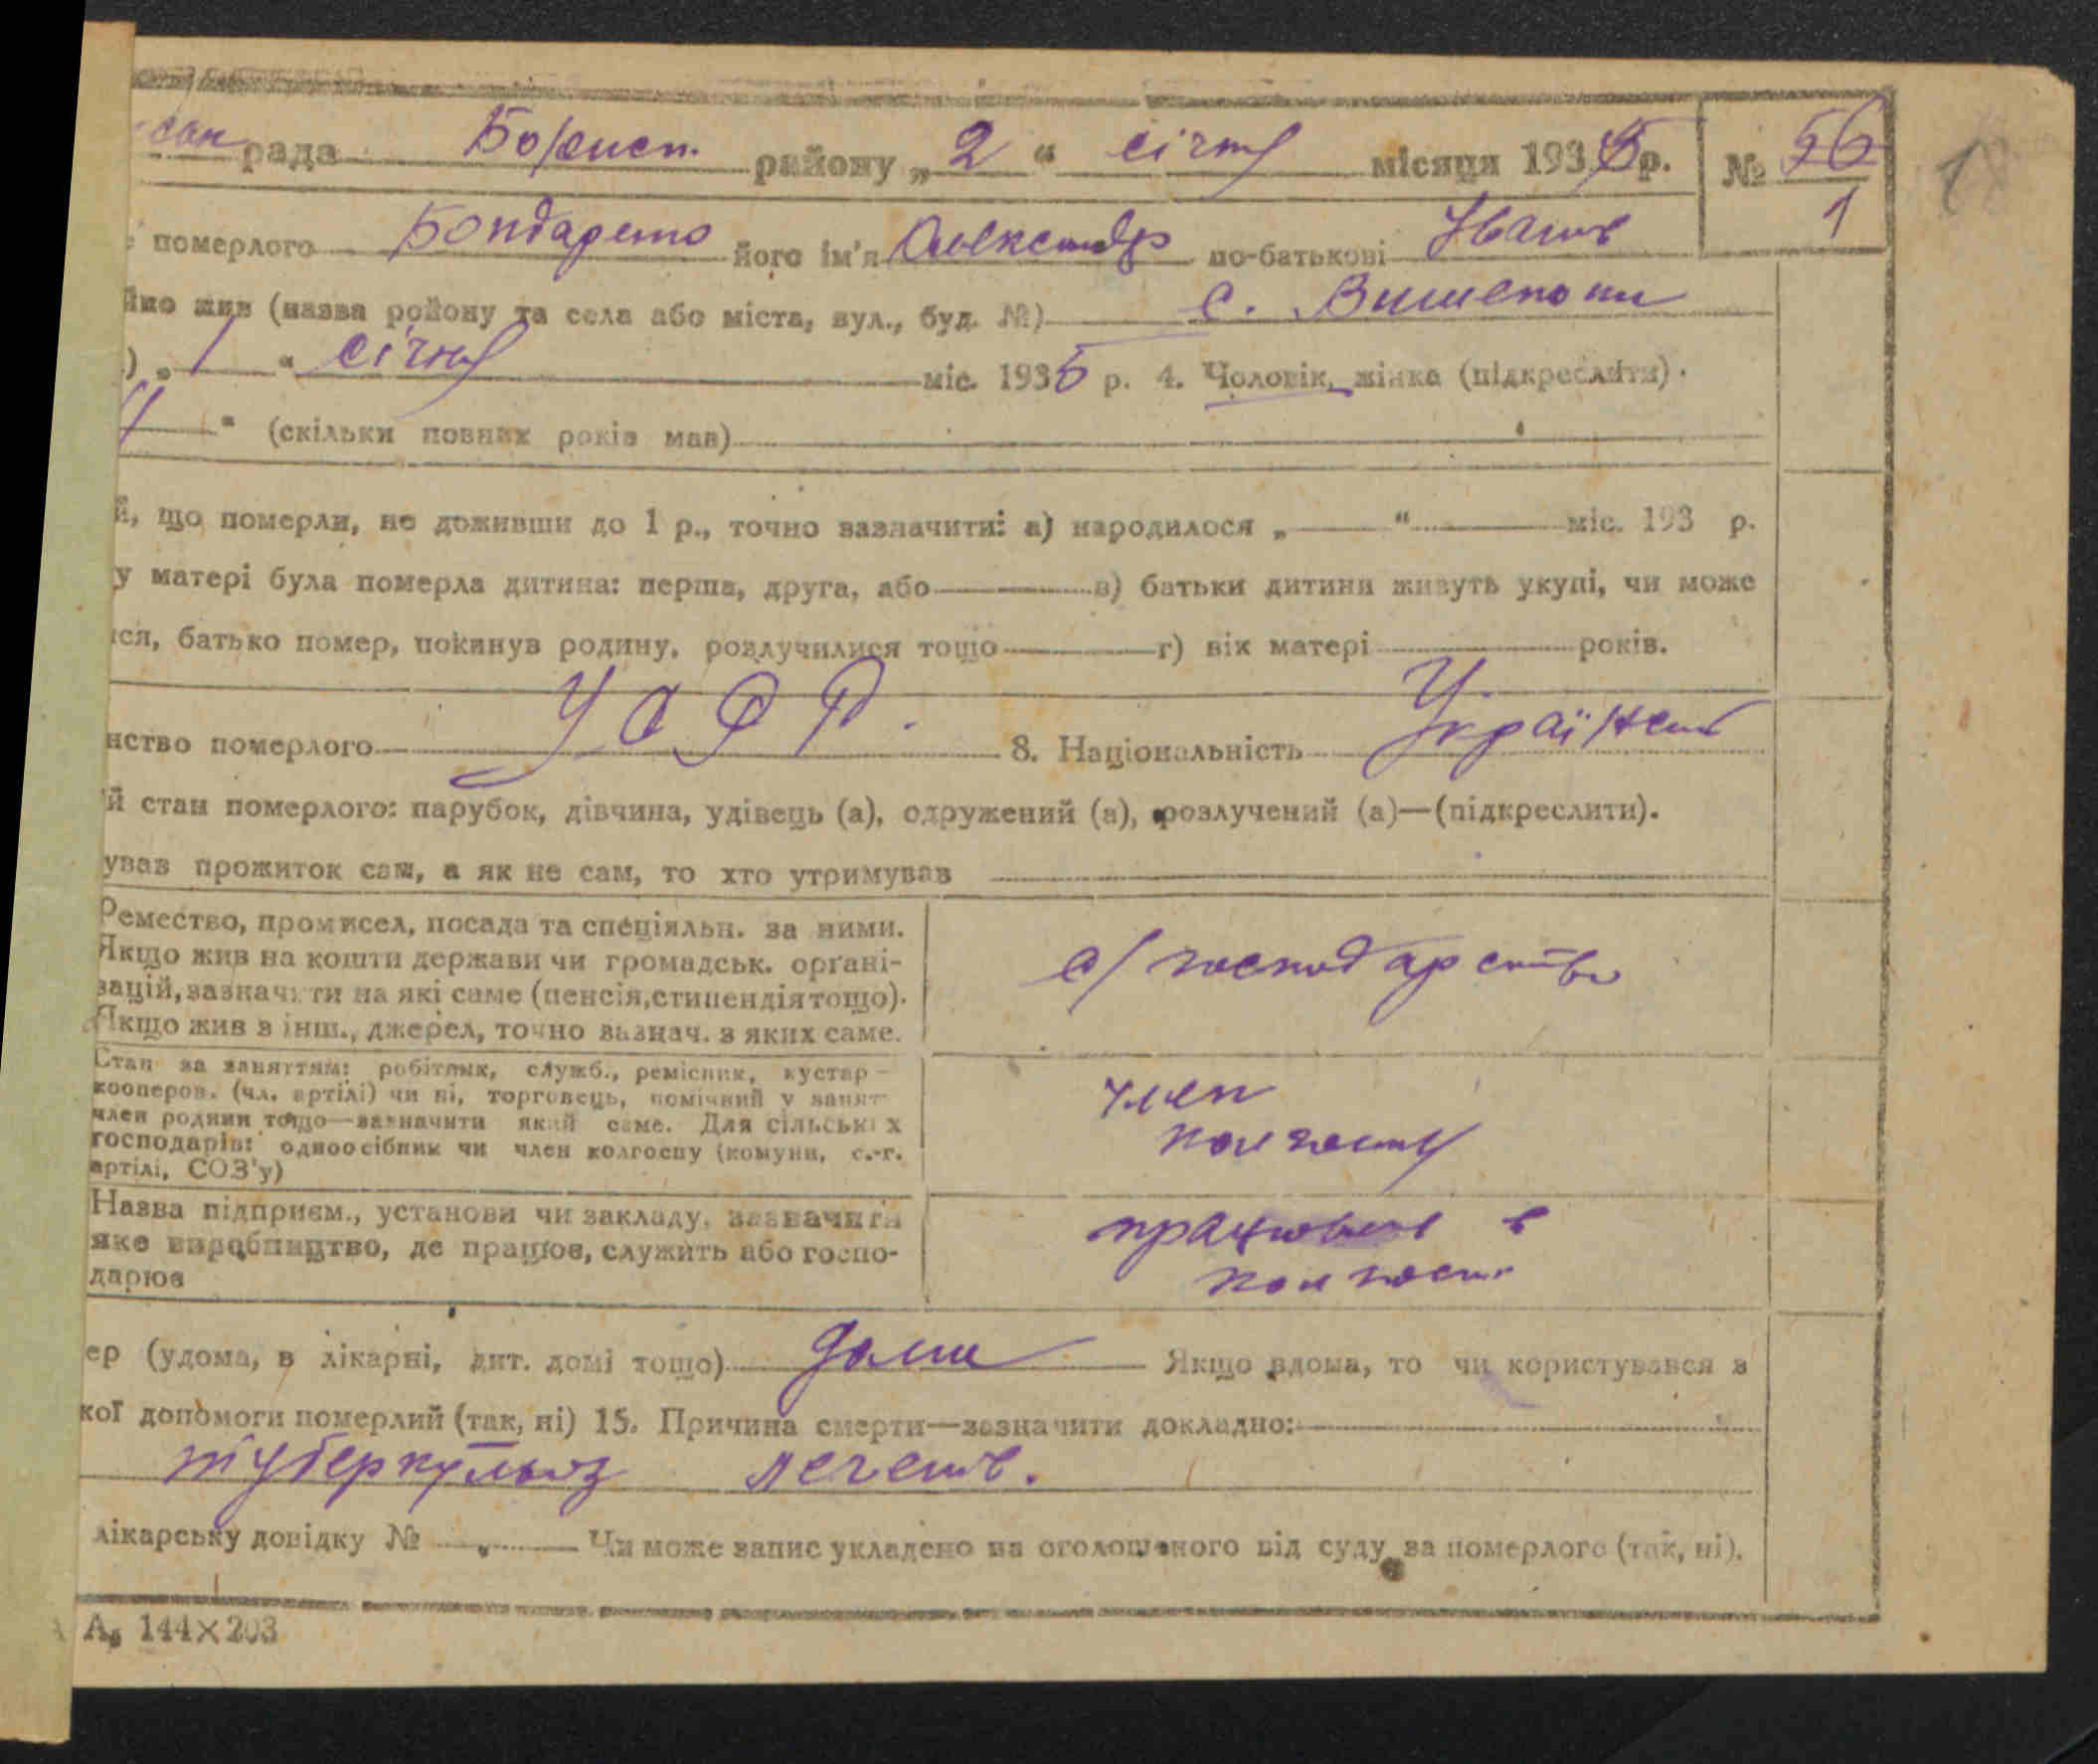 рада Бориспі. району „2“ січня місяця 1935 р. № 56
1
померлого Бондаренко його ім'я Олександр по-батькові Іванов
йно жив (назва району та села або міста, вул., буд. №) с. Вишеньки
) „1“ січня міс. 1935 р. 4. Чоловік, жінка (підкреслити).
“ (скільки повних років мав)
й, що померли, не доживши до 1 р., точно зазначити: а) народилося „ “ міс. 193 р.
у матері була померла дитина: перша, друга, або в) батьки дитини живуть укупі, чи може
ся, батько помер, покинув родину, розлучилися тощо г) вік матері років.
нство померлого УСРР. 8. Національність Українец
й стан померлого: парубок, дівчина, удівець (а), одружений (а), розлучений (а)—(підкреслити).
ував прожиток сам, а як не сам, то хто утримував
Ремество, промисел, посада та спеціяльн. за ними.
Якщо жив на кошти держави чи громадськ. органі-
зацій, зазначити на які саме (пенсія, стипендія тощо).
Якщо жив в інш., джерел, точно зазнач. з яких саме.
с/господарство
Стан за заняттям: робітник, служб., ремісник, кустар-
кооперов. (чл. артілі) чи ні, торговець, помічний у занят
член родини тощо—зазначити який саме. Для сільських
господарів: одноосібник чи член колгоспу (комуни, с.-г.
артілі, СОЗ'у)
член
колгоспу
Назва підприєм., установи чи закладу, зазначити
яке виробництво, де працює, служить або госпо-
дарює
працював в
колгоспі
ер (удома, в лікарні, дит. домі тощо) дома Якщо вдома, то чи користувався з
кої допомоги померлий (так, ні) 15. Причина смерти—зазначити докладно:
туберкульоз легенів.
лікарську довідку № Чи може запис укладено на оголошеного від суду за померлого (так, ні).
144×203